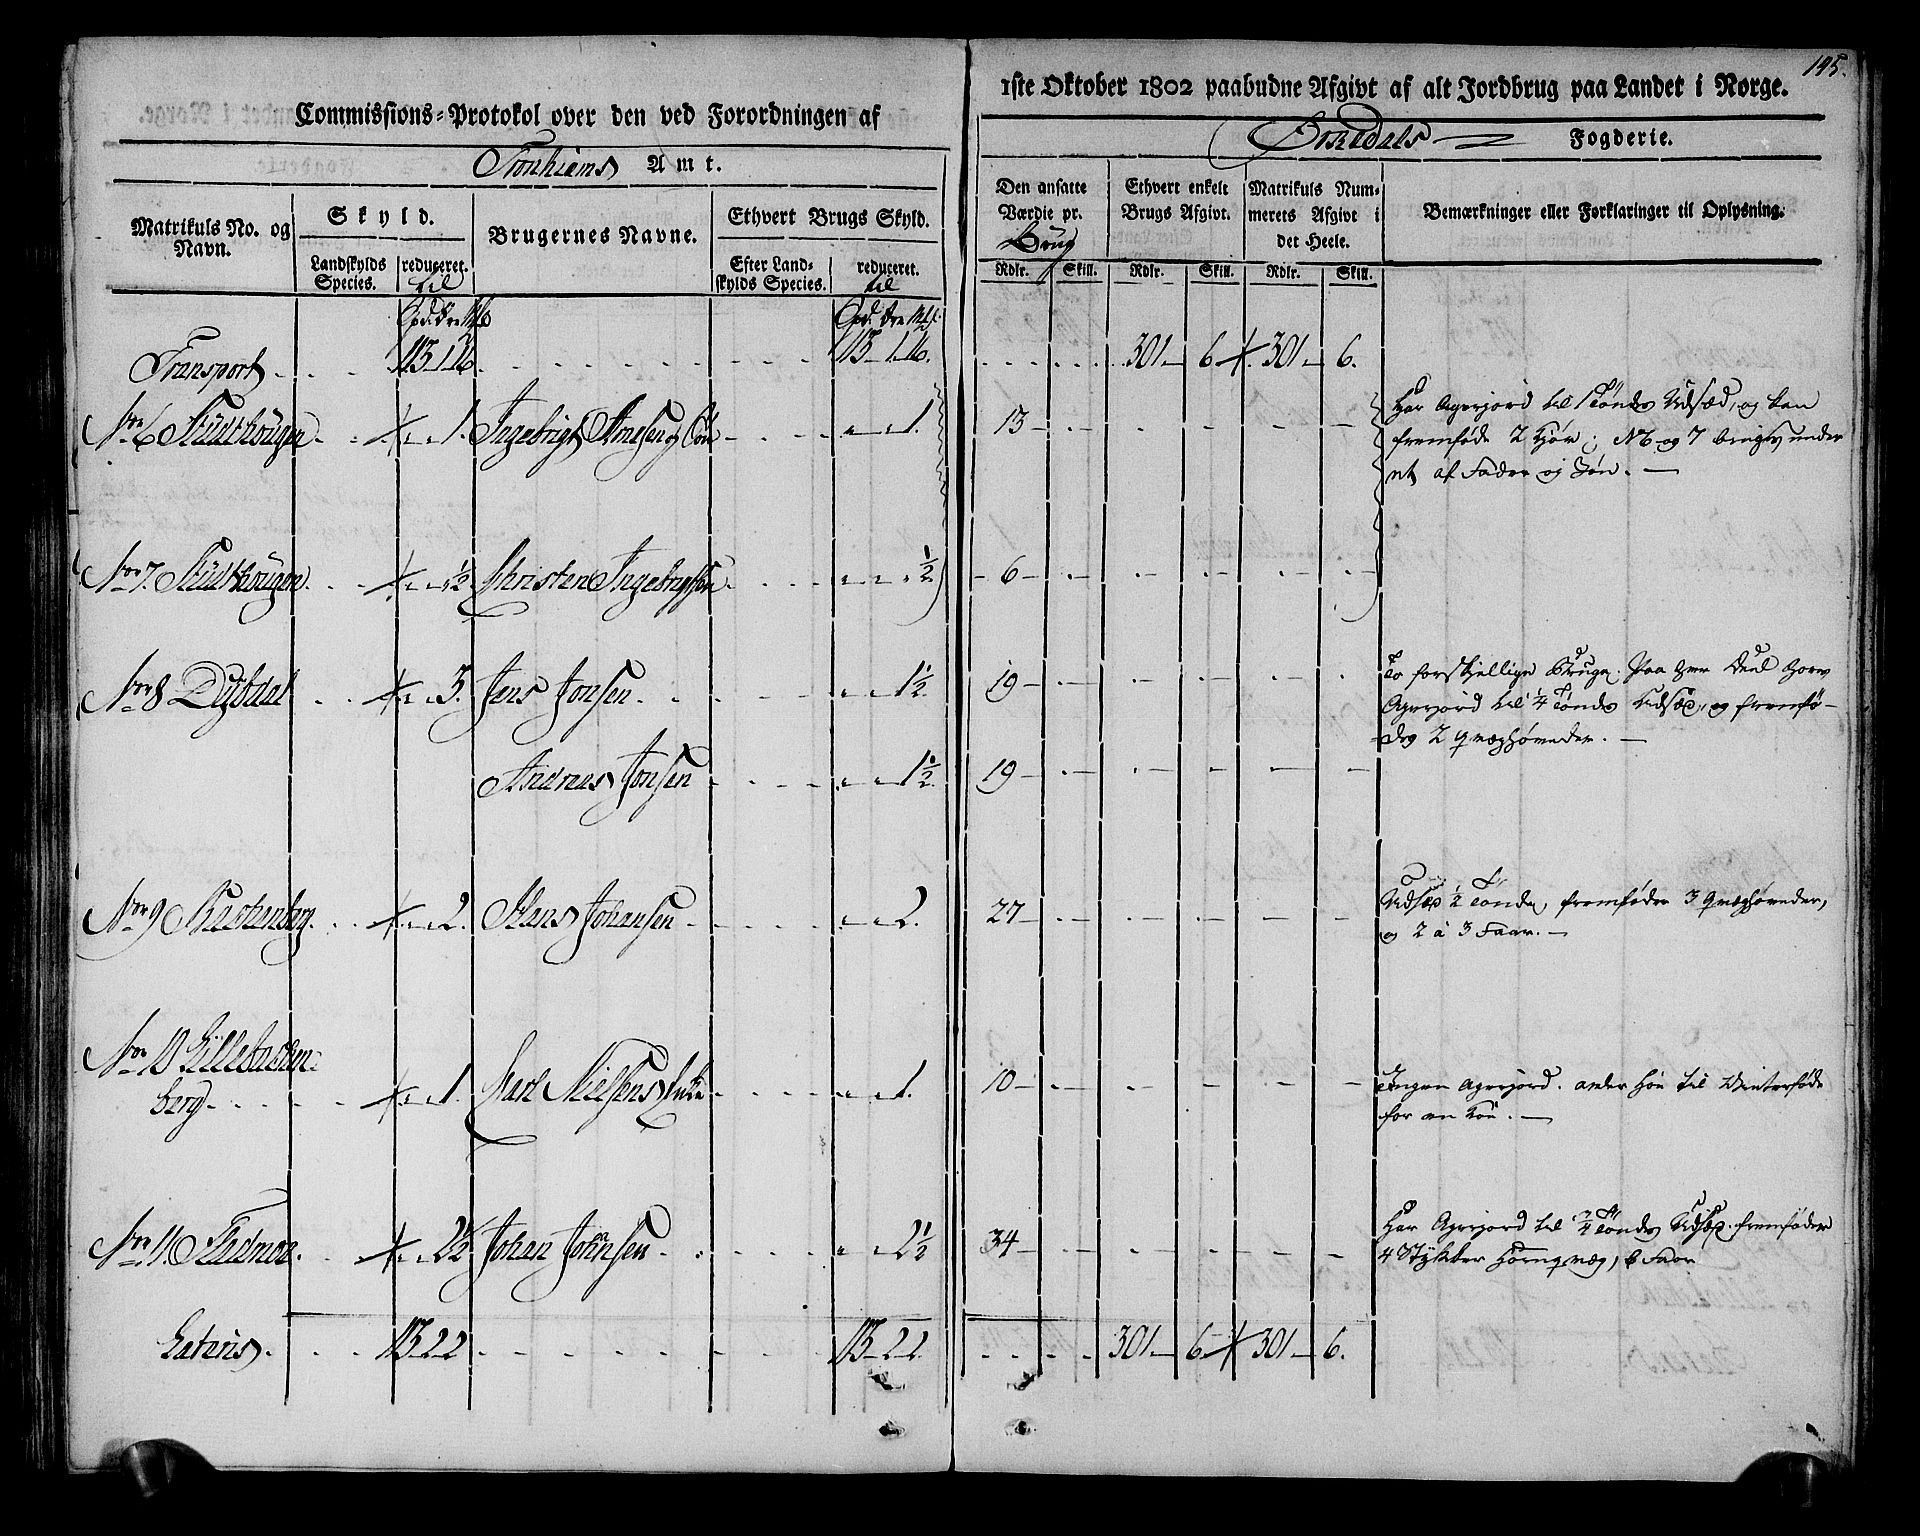 145.
Commissions-Protokol over den ved Forordningen af
1ste Oktober 1802 paabudne Afgivt af alt Jordbrug paa Landet i Norge.
Tronhiems Amt.
Orkedals Fogderie.
Matrikuls No. og Navn.
Skyld.
Landskylds Species.
reduceret. til
Brugernes Navne.
Ethvert Brugs Skyld.
Efter Landskylds Species.
reduceret. til
Den ansatte Værdie pr. Brug
Ethvert enkelt Brugs Afgivt.
Matrikuls Nummerets Afgivt i det Heele.
Bemærkninger eller Forklaringer til Oplysning.
Rdlr. Skill. Rdlr. Skill. Rdlr. Skill.
Transport 113 1 16 113 1 16. 301 6 301 6.
No 6 1. Ingebrigt Arnesen og Søn 1. 13
Har Agerjord til 1 Tønde Udsæd, og kan
fremføde 2 Kjør; No 6 og 7 bruges under
et af Fader og Søn.
No 7. 1/2 Christen Ingebrigtsen 1/2 6
No 8 Dybdal 3. Jens Jonsen 1 1/2 19
To forskjellige Bruge; Paa hver Deel haves
Agerjord til 1/4 Tønde Udsæd, og fremfø-
des 2 Qvæghøveder.
Andreas Jonsen 1 1/2 19
No 9 2. Hans Johansen 2. 27
Udsæd 1/2 Tønde, fremføder 3 Qvæghøveder,
og 2 à 3 Faar.
No 10 Lille
berg 1. Karl Nielsens Enke 1. 10
Ingen Agerjord. avler Høe til Vinterføde
for en Koe.
No 11. 2 1/2 Johan Johnsen 2 1/2 34
Har Agerjord til 3/4 Tønde Udsæd. fremføder
4 Stykker Hornqvæg, 6 Faar
Lateris. 113 2 2 113 2 2. 301 6 301 6.